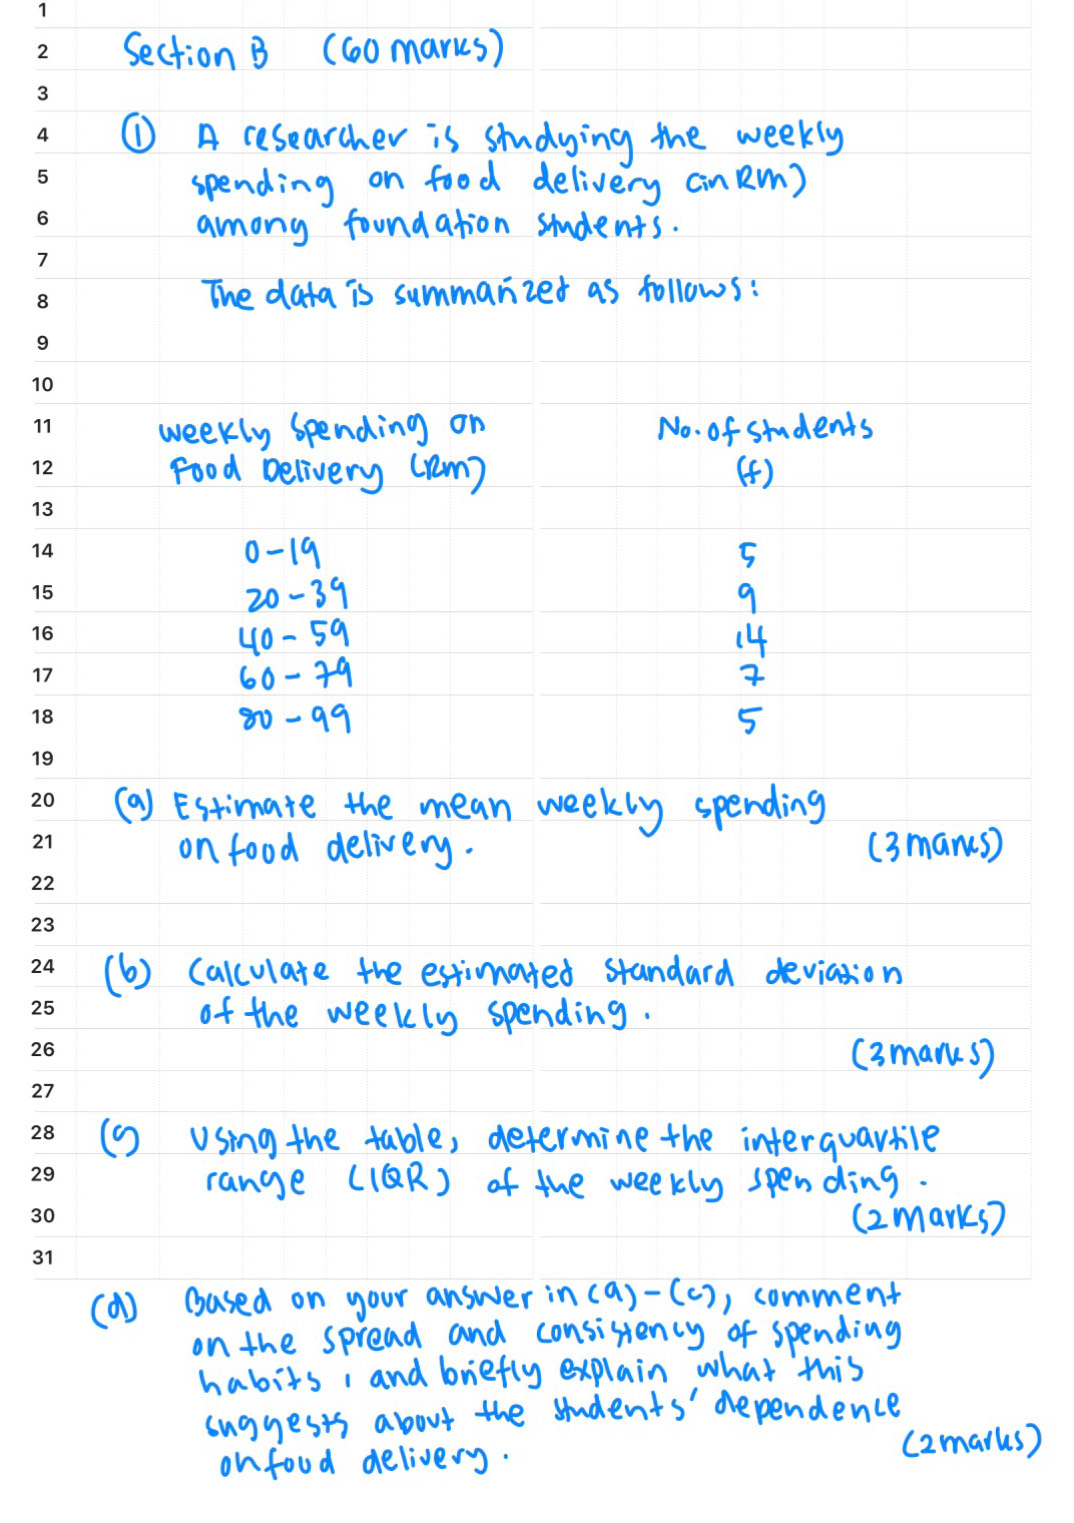 1
2 Section B (60 marks)
3
4 ① A researcher is studying the weekly
5 spending on food delivery (in RM)
6 among foundation students.
7
8 The data is summarized as follows:
9
10
11 Weekly Spending on No. of students
12 Food Delivery (RM) (f)
13
14 0-19 5
15 20-39 9
16 40-59 14
17 60-79 7
18 80-99 5
19
20 (a) Estimate the mean weekly spending
21 on food delivery. (3 marks)
22
23
24 (b) Calculate the estimated standard deviation
25 of the weekly spending.
26 (3 marks)
27
28 (c) Using the table, determine the interquartile
29 range (IQR) of the weekly spending.
30 (2 marks)
31
(d) Based on your answer in (a)-(c), comment
on the spread and consistency of spending
habits, and briefly explain what this
suggests about the students' dependence
on food delivery. (2 marks)